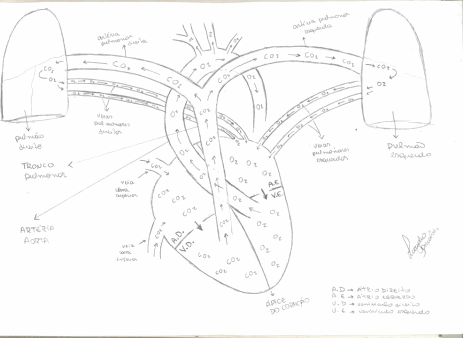 artéria pulmonar direita
artéria pulmonar esquerda
CO₂ CO₂ CO₂
CO₂ CO₂ CO₂ CO₂
O₂ O₂
veias pulmonares direitas
veias pulmonares esquerdos
pulmão direito
pulmão esquerdo
TRONCO
pulmonar
ARTÉRIO
AORTA
veia
cava
superior
veia
cava
inferior
A.D.
V.D.
A.E.
V.E.
ÁPICE
DO CORAÇÃO
A.D → ÁTRIO DIREITO
A.E → ÁTRIO ESQUERDO
V.D → ventrículo direito
V.E → ventrículo esquerdo